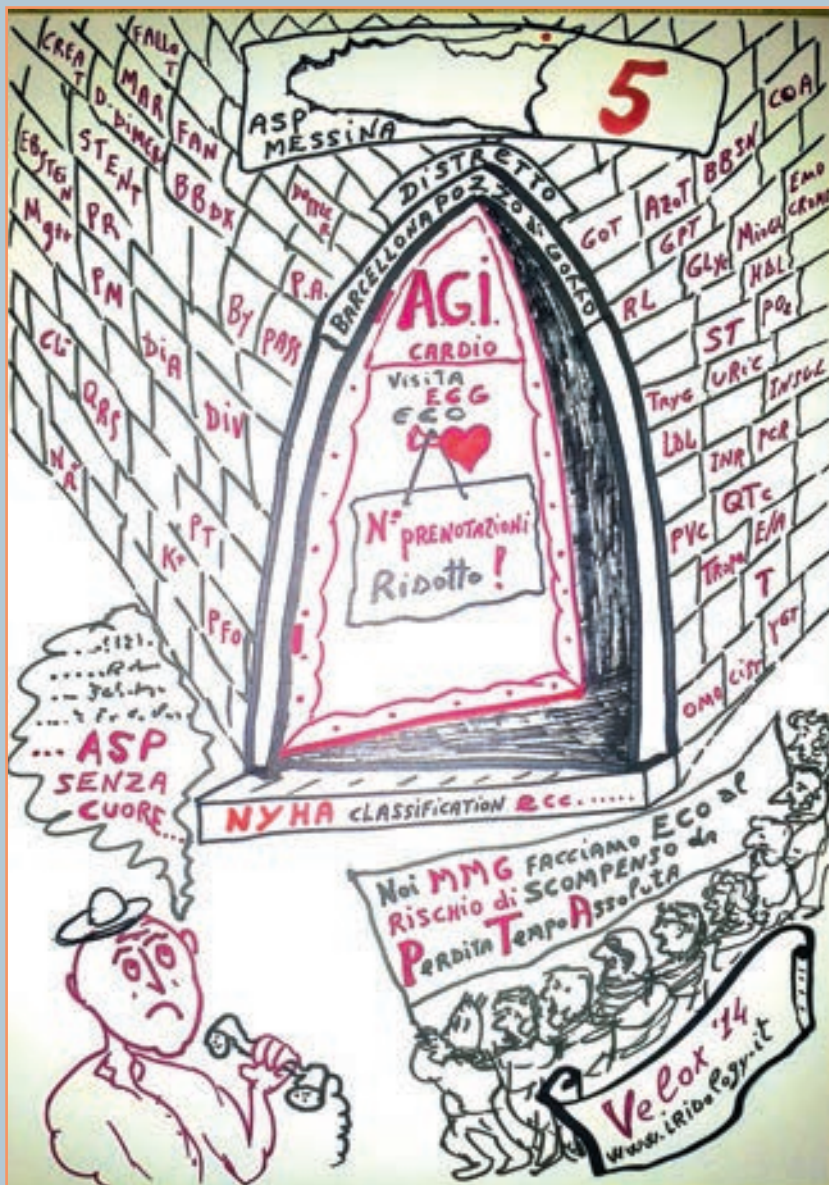 ASP
MESSINA
5
DISTRETTO
BARCELLONA POZZO di GOTTO
CREA
T
FALLO
T
MAR
D-DIMER
FAN
EBSTEIN
STENT
BBDX
DOPPLE
R
Mg++
PR
P.A.
PM
BY PASS
CL-
DIA
QRS
DIV
Na+
PT
K+
PFO
COA
BBSN
AZOT
GOT
EMO
CROMO
GPT
GLYC
HDL
RL
ST
PO2
URIC
TRYG
INSUL
LDL
INR
PCR
QTc
PVC
E/A
TROPA
T
γGT
OMO
CIST
A.G.I.
CARDIO
VISITA
ECG
ECO
N° PRENOTAZIONI
RIDOTTO!
NYHA CLASSIFICATION ECC......
... ASP
SENZA
CUORE...
Noi MMG FACCIAMO ECO al
RISCHIO di SCOMPENSO da
PERDITA TEMPO ASSOLUTA
Velox '14
www.iridology.it